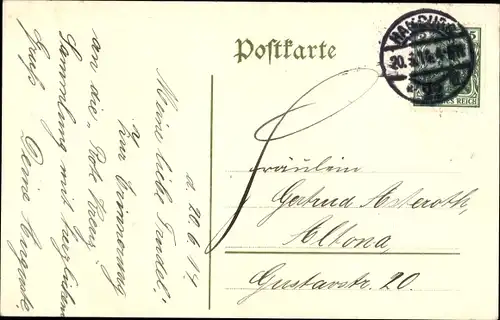 Postkarte
HAMBURG
20.6.14.4-5N
5
REICH
d 20.6.14.
Meine liebe Trudel!
Zur Erinnerung
an die "Rote Kreuz"
Sammlung mit herzlichem
Gruß
Deine Auguste.
Fräulein
Gertrud Asteroth,
Altona,
Gustavstr. 20.